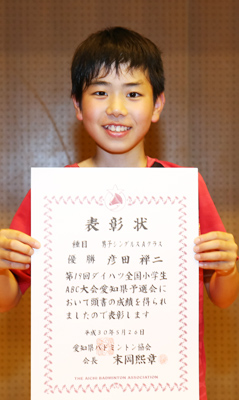 表彰状
種目　男子シングルスAクラス
優勝　彦田禅二
第19回ダイハツ全国小学生
ABC大会愛知県予選会に
おいて頭書の成績を得られ
ましたので表彰します
平成30年5月26日
愛知県バドミントン協会
会長　末岡熙章
THE AICHI BADMINTON ASSOCIATION